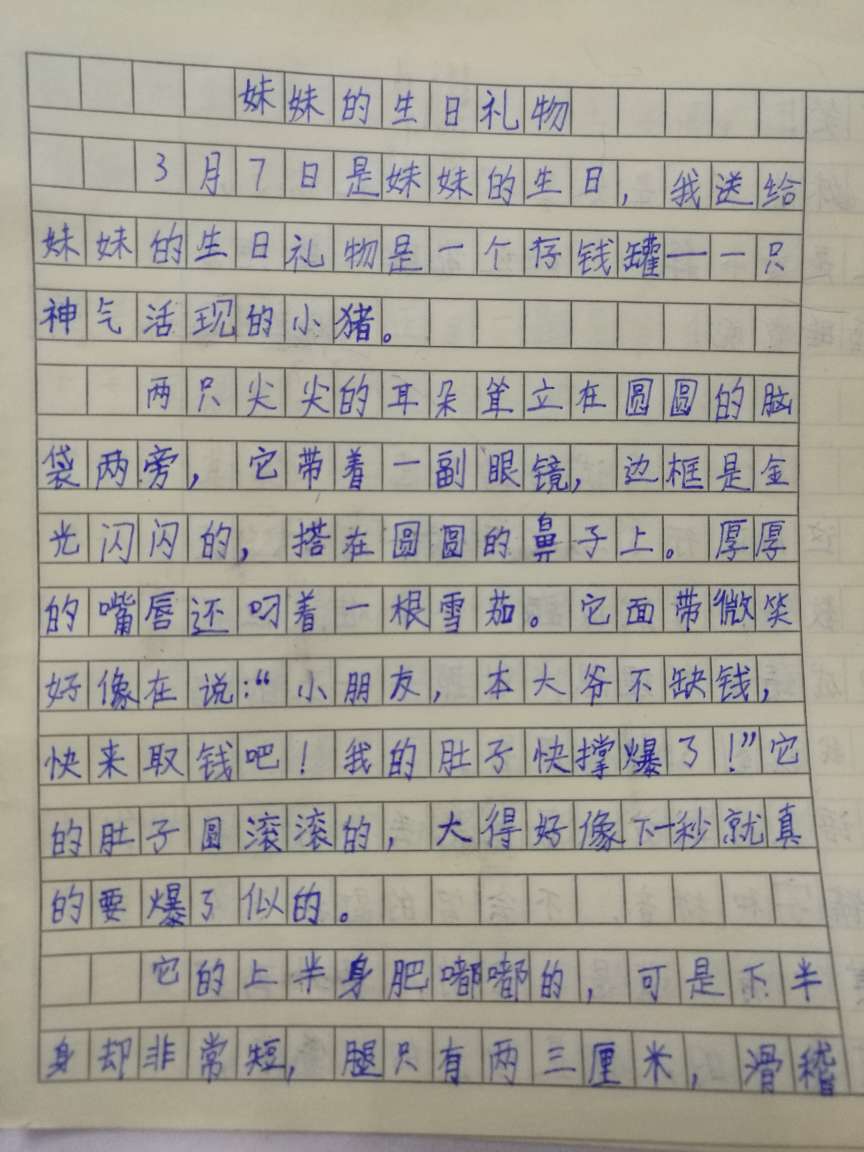 妹妹的生日礼物
3月7日是妹妹的生日，我送给
妹妹的生日礼物是一个存钱罐——一只
神气活现的小猪。
两只尖尖的耳朵耸立在圆圆的脑
袋两旁，它带着一副眼镜，边框是金
光闪闪的，搭在圆圆的鼻子上。厚厚
的嘴唇还叼着一根雪茄。它面带微笑
好像在说：“小朋友，本大爷不缺钱，
快来取钱吧！我的肚子快撑爆了！”它
的肚子圆滚滚的，大得好像下一秒就真
的要爆了似的。
它的上半身肥嘟嘟的，可是下半
身却非常短，腿只有两三厘米，滑稽